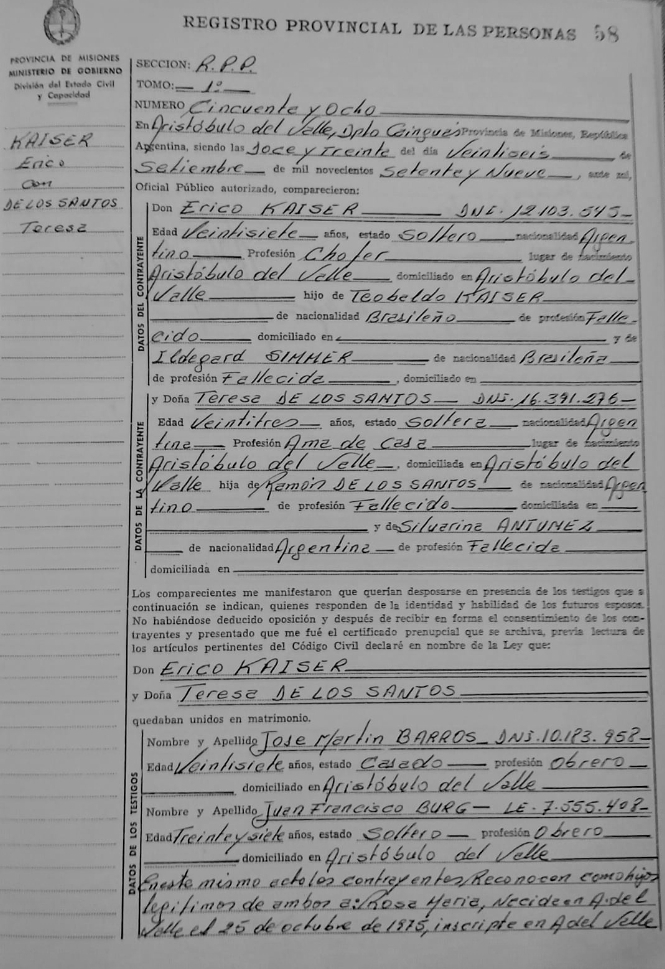 REGISTRO PROVINCIAL DE LAS PERSONAS 58
PROVINCIA DE MISIONES
MINISTERIO DE GOBIERNO
División del Estado Civil
y Capacidad
KAISER
Erico
con
DE LOS SANTOS
Teresa
SECCION: R.P.P.
TOMO: 1º
NUMERO Cincuente y Ocho
En Aristóbulo del Valle, Dpto Cainguás Provincia de Misiones, República
Argentina, siendo las Doce y Treinte del día Veintiseis de
Setiembre de mil novecientos Setente y Nueve, ante mí,
Oficial Público autorizado, comparecieron:
DATOS DEL CONTRAYENTE
Don Erico KAISER DNI. 12.103.545
Edad Veintisiete años, estado Soltero nacionalidad Argen
tino Profesión Chofer lugar de nacimiento
Aristóbulo del Valle domiciliado en Aristóbulo del
Valle hijo de Teobaldo KAISER
de nacionalidad Brasileño de profesión Falle-
cido domiciliado en y de
Ildegard SIMMER de nacionalidad Brasileña
de profesión Fallecida, domiciliado en
DATOS DE LA CONTRAYENTE
y Doña Teresa DE LOS SANTOS DNI. 16.391.276
Edad Veintitres años, estado Soltera nacionalidad Argen
tina Profesión Ama de Casa lugar de nacimiento
Aristóbulo del Valle, domiciliada en Aristóbulo del
Valle hija de Ramón DE LOS SANTOS de nacionalidad Argen
tino de profesión Fallecido domiciliada en
y de Silvarina ANTUNEZ
de nacionalidad Argentina de profesión Fallecida
domiciliada en
Los comparecientes me manifestaron que querían desposarse en presencia de los testigos que a
continuación se indican, quienes responden de la identidad y habilidad de los futuros esposos.
No habiéndose deducido oposición y después de recibir en forma el consentimiento de los con-
trayentes y presentado que me fué el certificado prenupcial que se archiva, previa lectura de
los artículos pertinentes del Código Civil declaré en nombre de la Ley que:
Don Erico KAISER
y Doña Teresa DE LOS SANTOS
quedaban unidos en matrimonio.
DATOS DE LOS TESTIGOS
Nombre y Apellido Jose Martin BARROS DNI. 10.183.958
Edad Veintisiete años, estado Casado profesión Obrero
domiciliado en Aristóbulo del Valle
Nombre y Apellido Juan Francisco BURG LE. 7.555.408
Edad Treinteysiete años, estado Soltero profesión Obrero
domiciliado en Aristóbulo del Valle
En este mismo acto los contrayentes Reconocen como hijos
legitimos de ambos a: Rosa Maria, Necida en A. del
Valle el 25 de octubre de 1975, inscripte en A del Valle